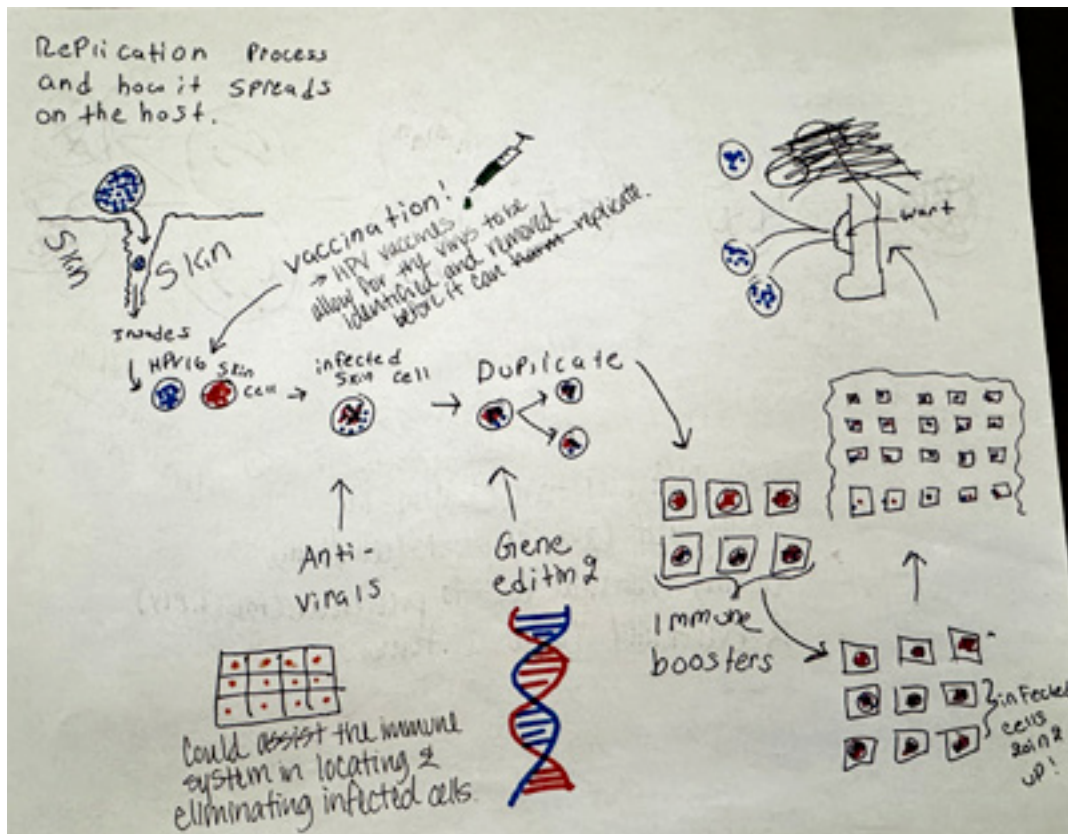 RePlication Process
and how it spreads
on the host.
Skin
Skin
vaccination!
→ HPV vaccines
allow for the virus to be
identified and removed
before it can harm replicate.
wart
Invades
HPV16
Skin
cell
infected
Skin cell
Duplicate
Anti-
virals
Gene
editing
Immune
boosters
infected
cells
going
up!
Could assist the immune
system in locating &
eliminating infected cells.